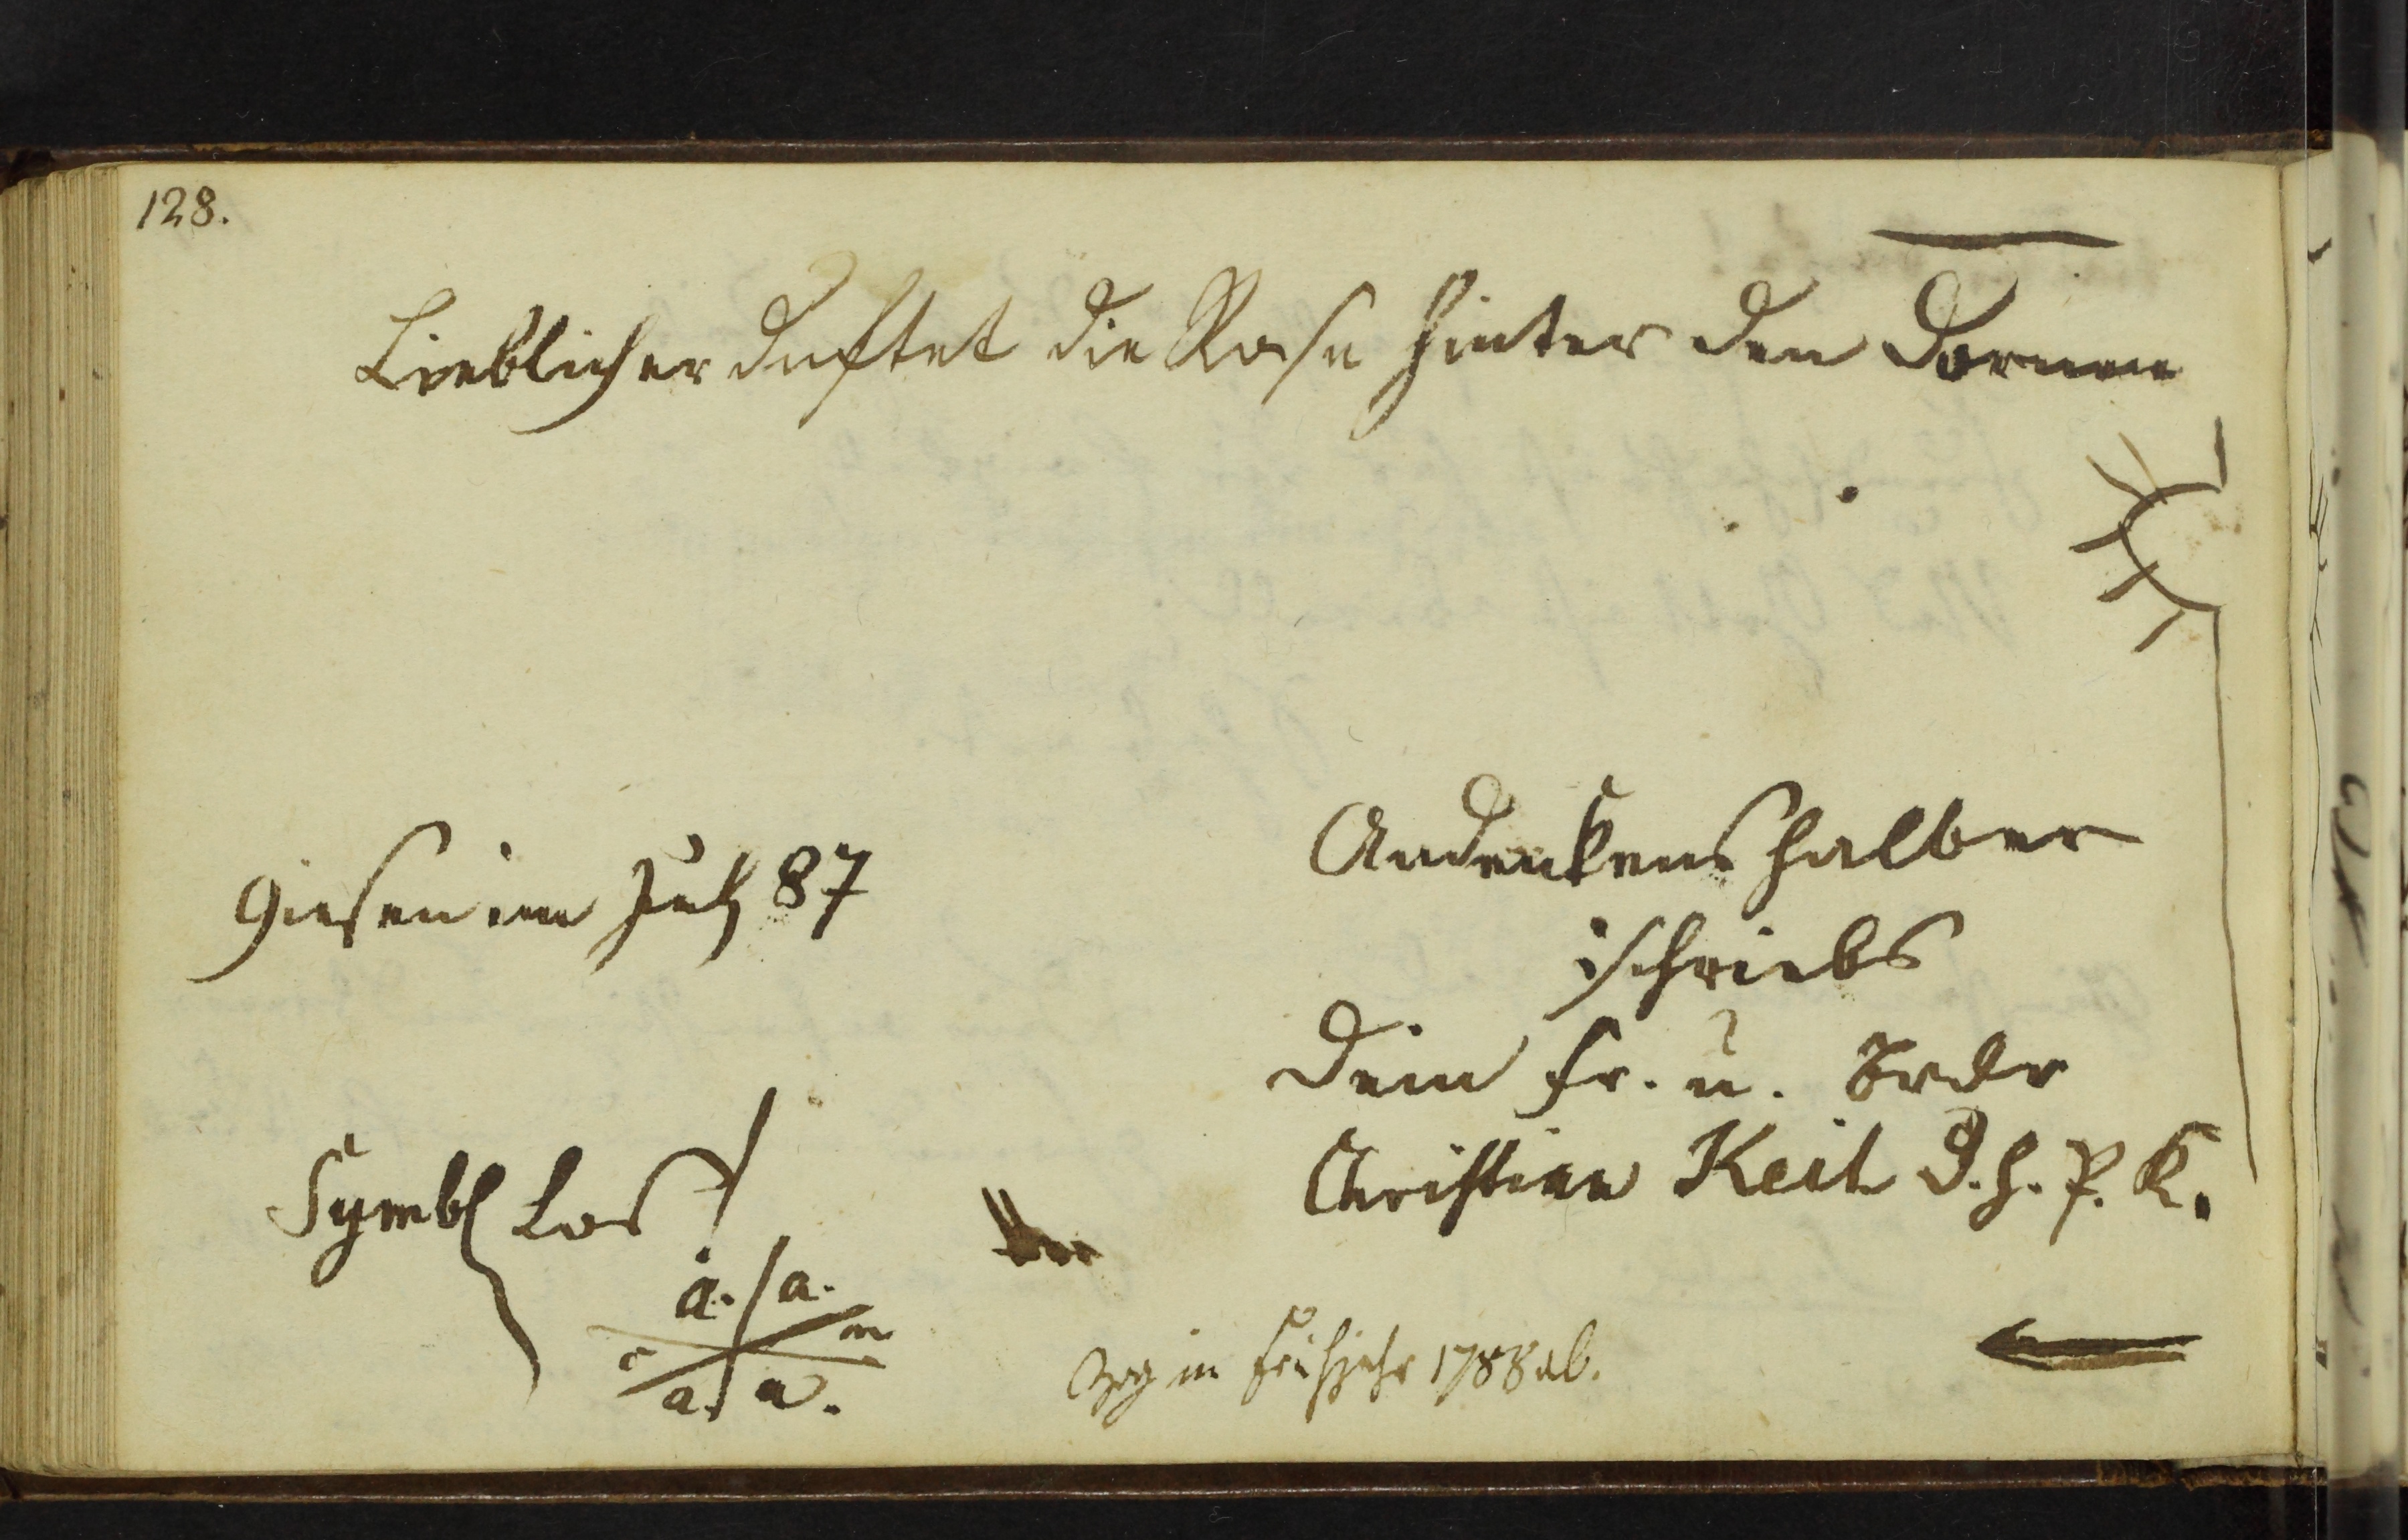 128.
Lieblicher duftet die Rose hinter den Dornen
Giesen im July 87
Andenkens halber
schriebs
Dein Fr. u. Brdr
Christian Keil D. H. P. K.
Symbl Los!
a. a.
c
a. a.
Zog im Frühjahr 1788 ab.